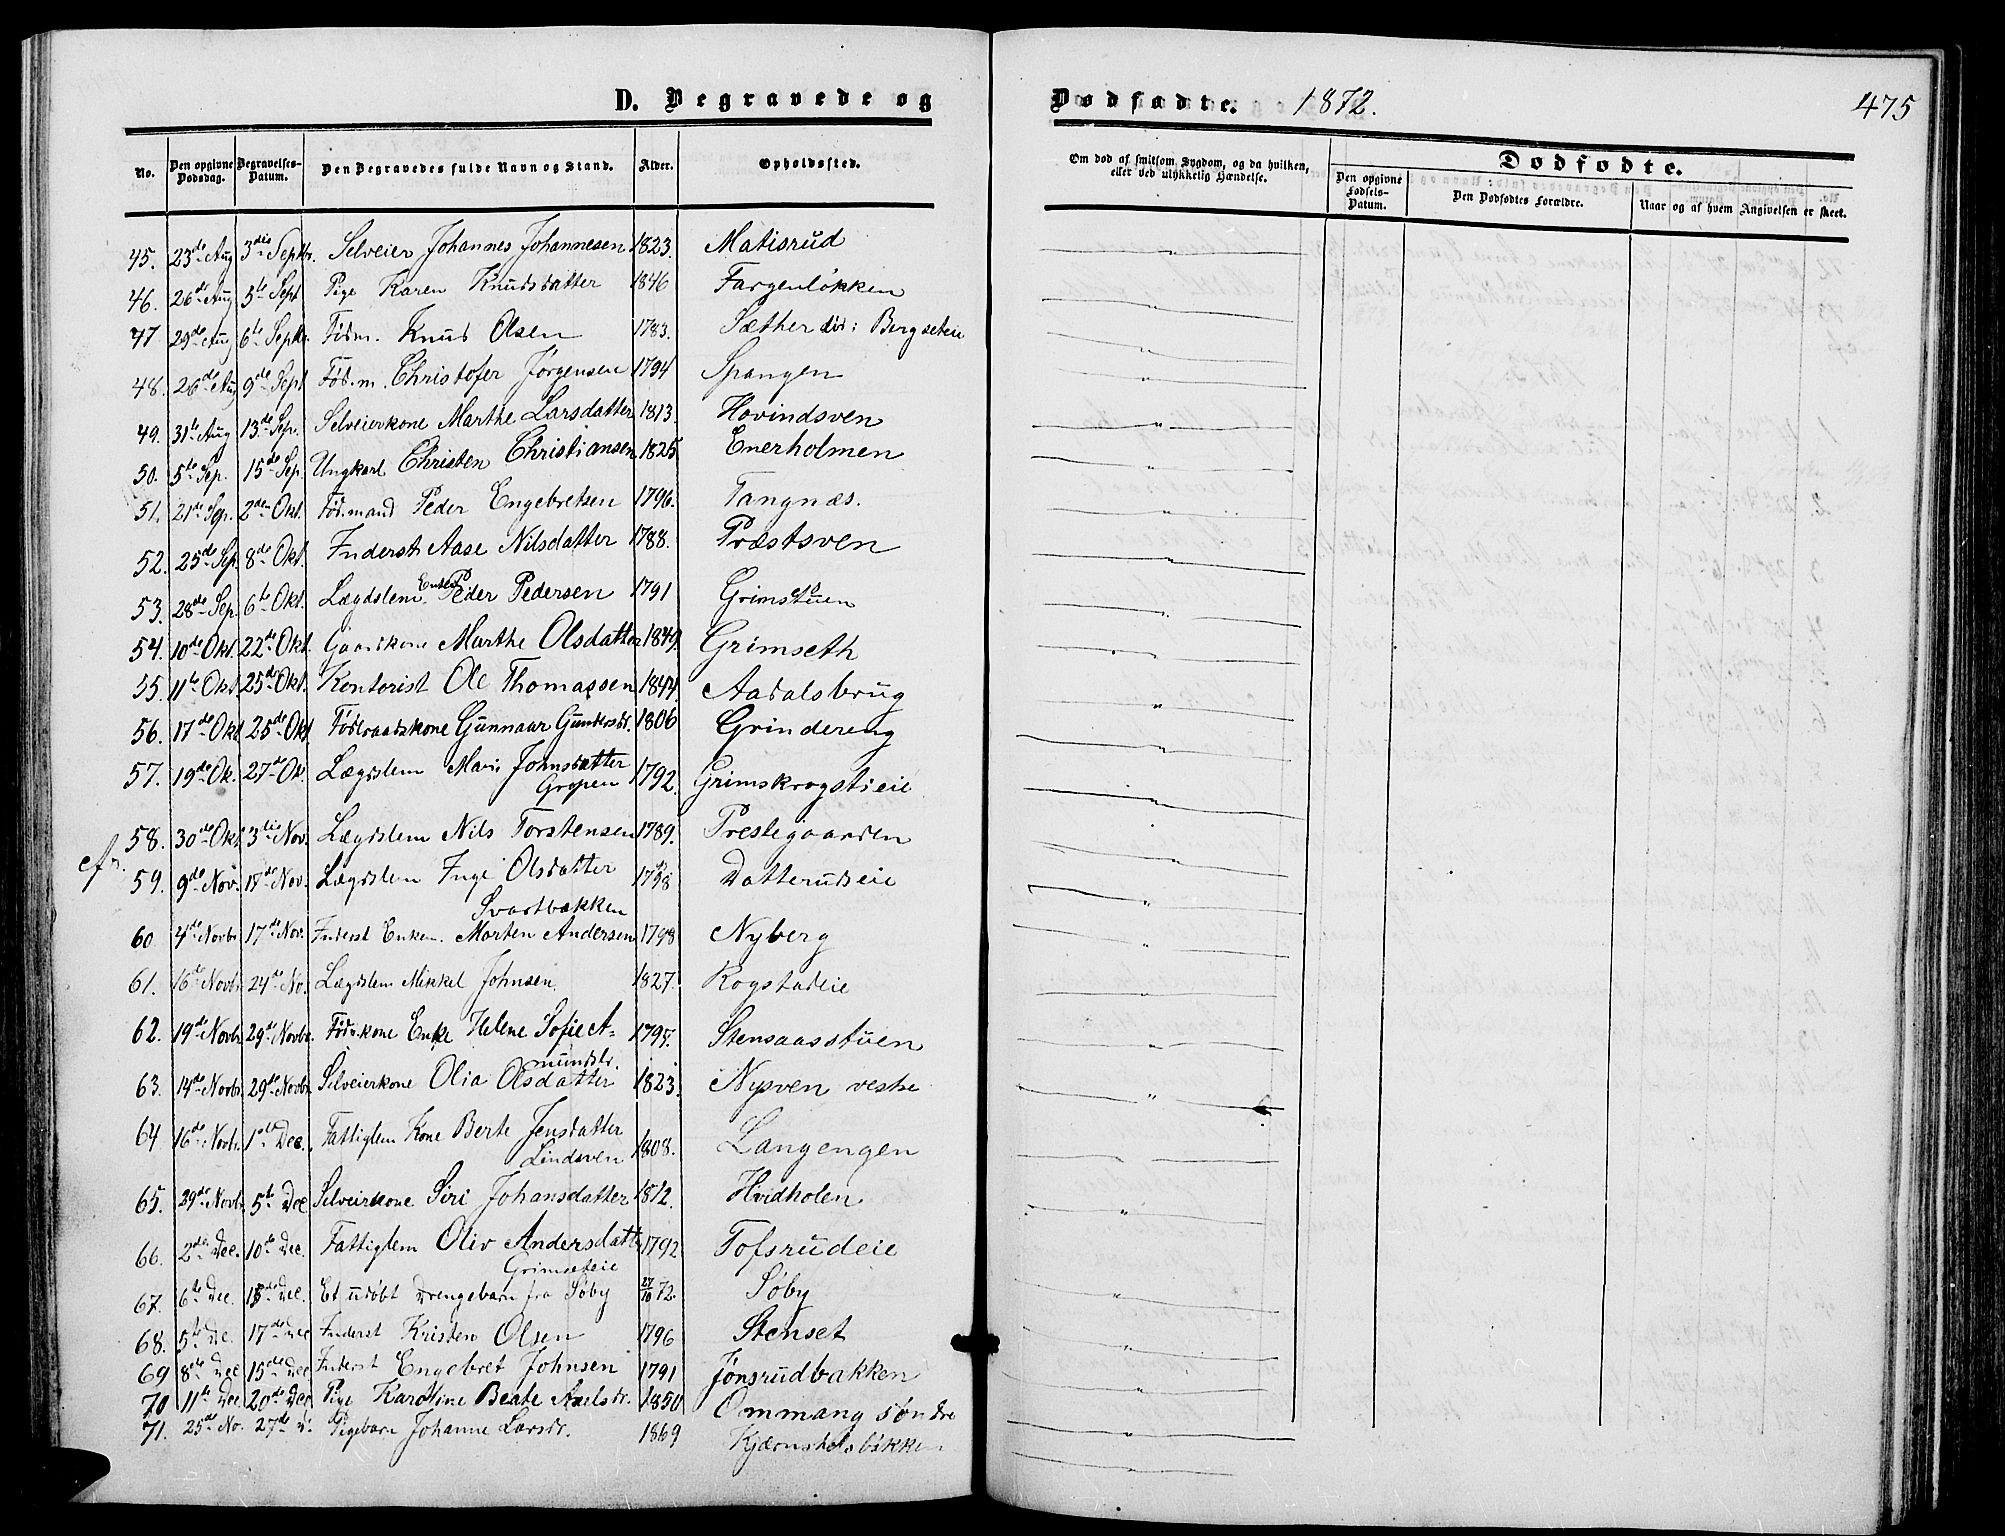 D. Begravede og Dødfødte. 1872. 475
No. Den opgivne Dødsdag. Begravelses-Datum. Den Begravedes fulde Navn og Stand. Alder. Opholdssted. Om død af smitsom Sygdom, og da hvilken, eller ved ulykkelig Hændelse. Dødfødte. Den opgivne Fødsels-Datum. Den Dødfødtes Forældre. Naar og af hvem Angivelsen er skeet.
45. 23de Aug 3die Septbr. Selveier Johannes Johannesen 1823. Matisrud
46. 26de Aug 5te Sept Pige Karen Knudsdatter 1846 Fargenløkken
47 29de Aug 6te Septbr Fødm. Knud Olsen 1783. Sæther
48. 26de Aug 9de Sept Fød.m. Christofer Jørgensen 1794 Spangen
49. 31te Aug 13de Sep. Selveierkone Marthe Larsdatter 1813. Hovindsven
50. 5te Sep. 15de Sep. Ungkarl Christen Christiansen 1825 Enerholmen
51. 21de Sep. 2den Okt. Fødmand Peder Engebretsen 1796. Tangnæs.
52. 25de Sep. 8de Okt. Inderst Aase Nilsdatter 1788. Præstsven
53. 28de Sep. 6te Okt. Lægdslem Enkem. Peder Pedersen 1791 Grimstuen
54. 10de Okt. 22de Okt. Gaardkone Marthe Olsdatter 1849. Grimseth
55. 11te Okt 25de Okt. Kontorist Ole Thomassen 1844. Aadalsbrug
56. 17de Okt 25de Okt Fødraadskone Gunnaar Gundersdr. 1806 Grindereng
57. 19de Ok. 27de Ok. Lægdslem Mari Johnsdatter 1792. Grimskrogstieie
Gropen
58. 30de Okt 3die Nov. Lægdslem Nils Torstensen 1789. Prestegaarden
cfr.
59. 9de Nov. 18de Nov. Lægdslem Inge Olsdatter 1798 Datterudseie
Svartbækken
60 4de Novbr 17de Nov. Inderst Enkem. Morten Andersen 1798 Nyberg
61. 16de Novbr 24de No. Lægdslem Mikkel Johnsen 1827. Rogstadeie
62. 19de Novbr 29de Novbr. Fødr.kone Enke Helene Sofie A= 1797. Stensaasstuen
mundsdr.
63. 14de Novbr 29de Novbr Selveierkone Olia Olsdatter 1823. Nysven vestre
64 16de Novbr. 1ste Dec. Fattiglem Kone Berte Jensdatter 1808. Langengen
Lindsven
65. 29de Novbr 5te Dec Selveierkone Siri Johansdatter 1812. Hvidholen
66. 2den Dec. 10de Dec. Fattiglem Oliv Andersdatter 1792 Tofsrudeie
Grimseteie
67. 6te Dec. 15de Dec. Et udøbt Drengebarn fra Søby 27/10 72. Søby
68. 5te De. 17de Dec Inderst Kristen Olsen 1796 Stenset
69 8de Dec 15de Dec Inderst Engebret Johnsen 1791 Jønsrudbakken
70 11te Dec. 20de Dec Pige Karoline Beate Axelsdr. 1850 Ommang søndre
71. 25de No. 27de D. Pigebarn Johanne Larsdr. 1869 Kjærnsholsbakken